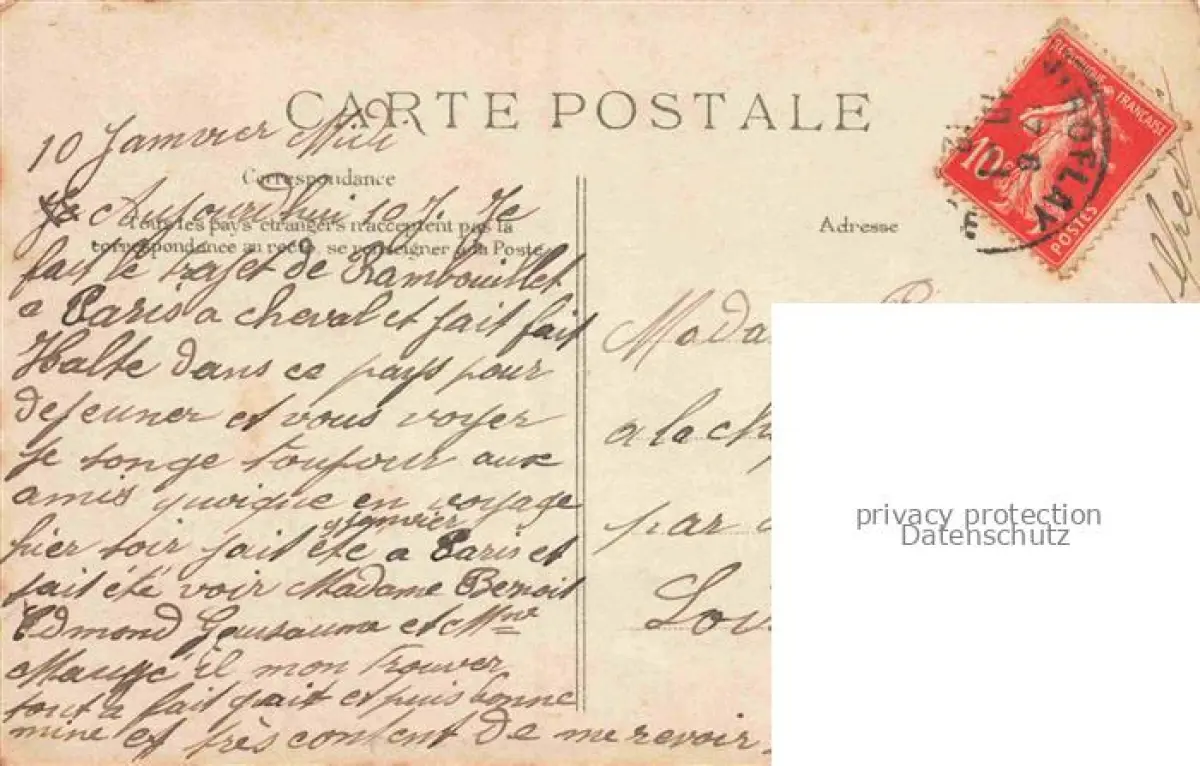 CARTE POSTALE
10 Janvier Midi
Correspondance
Tous les pays étrangers n'acceptent pas la
correspondance au recto, se renseigner à la Poste
Aujourdhui 10 J. Je
fait le trajet de Rambouillet
a Paris a cheval et fait fait
Halte dans ce pays pour
dejeuner et vous voyer
je songe toujour aux
amis quoique en voyage
9 janvier
hier soir jait été a Paris et
jait été voir Madame Benoit
Edmond et Mme
il mon trouver
tout a fait gait et puis bonne
mine et très content de me revoir.
Adresse
RÉPUBLIQUE FRANÇAISE
10c
POSTES
VIROFLAY
Mada
a la ch
par
Loi
privacy protection
Datenschutz